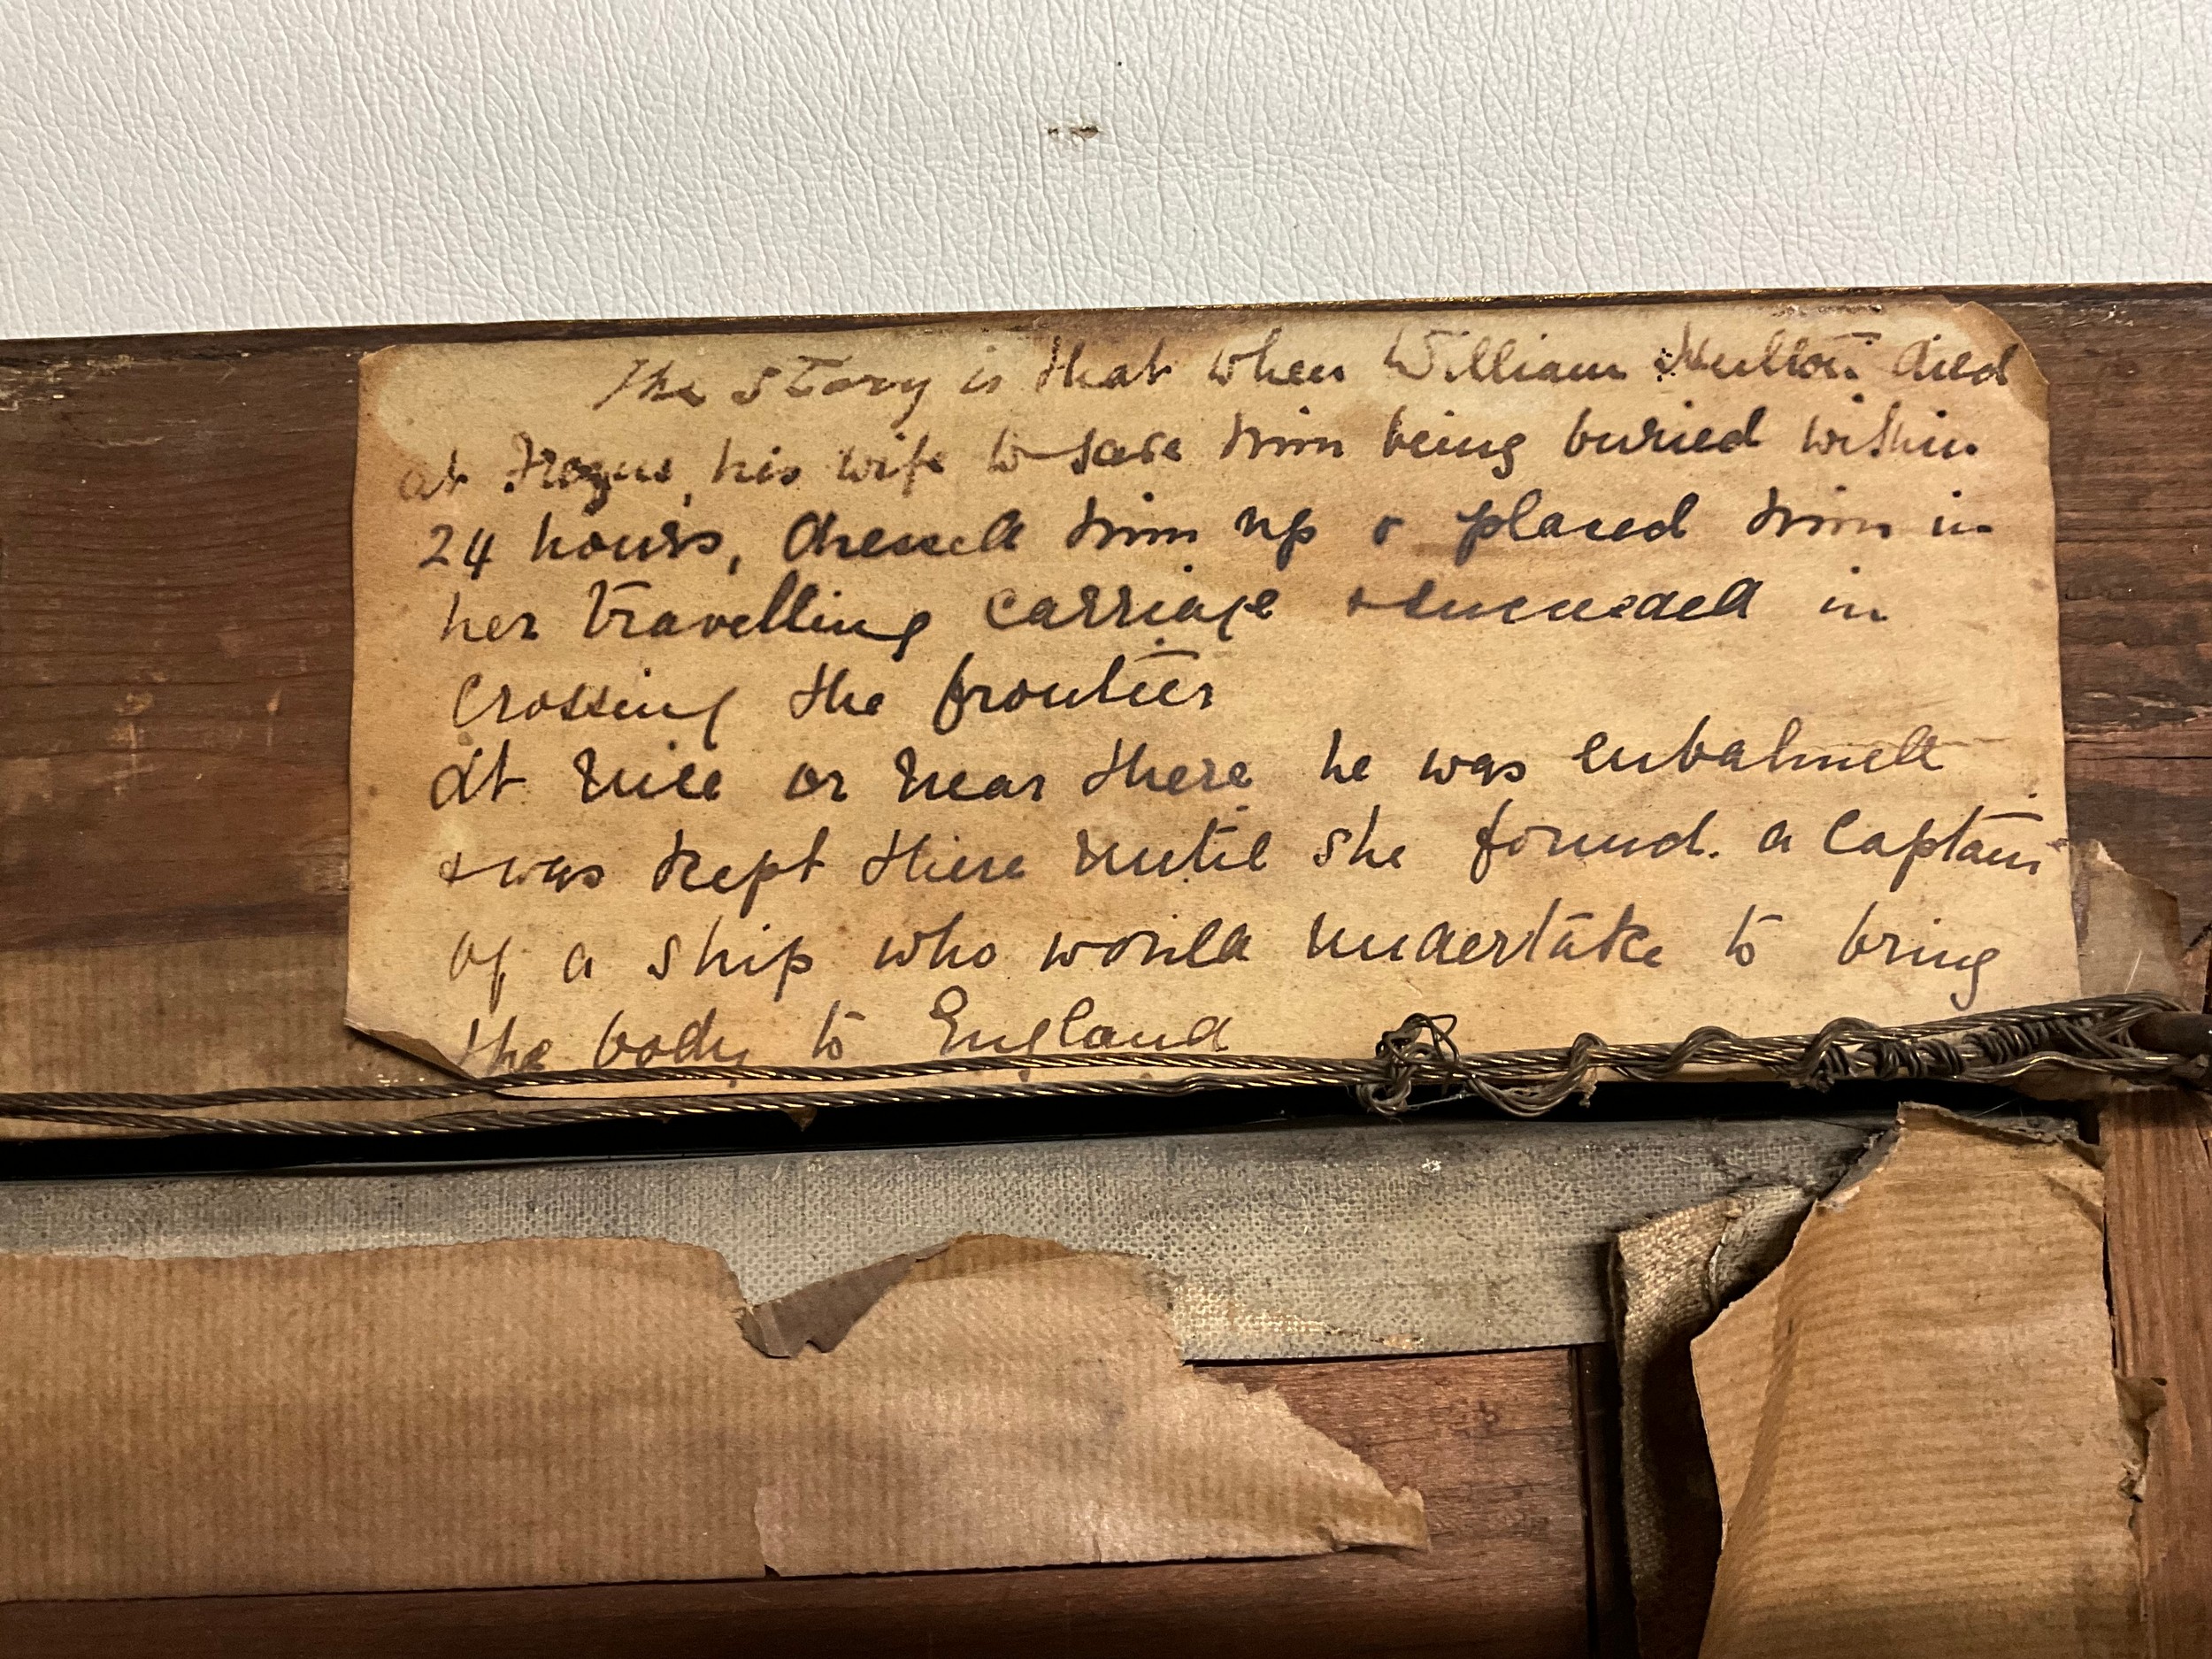 The story is that when William Hulton died
at Frejus, his wife to save him being buried within
24 hours, dressed him up & placed him in
her travelling carriage & succeeded in
crossing the frontier
At Nice or near there he was embalmed
& was kept there until she found. a Captain
of a ship who would undertake to bring
the body to England